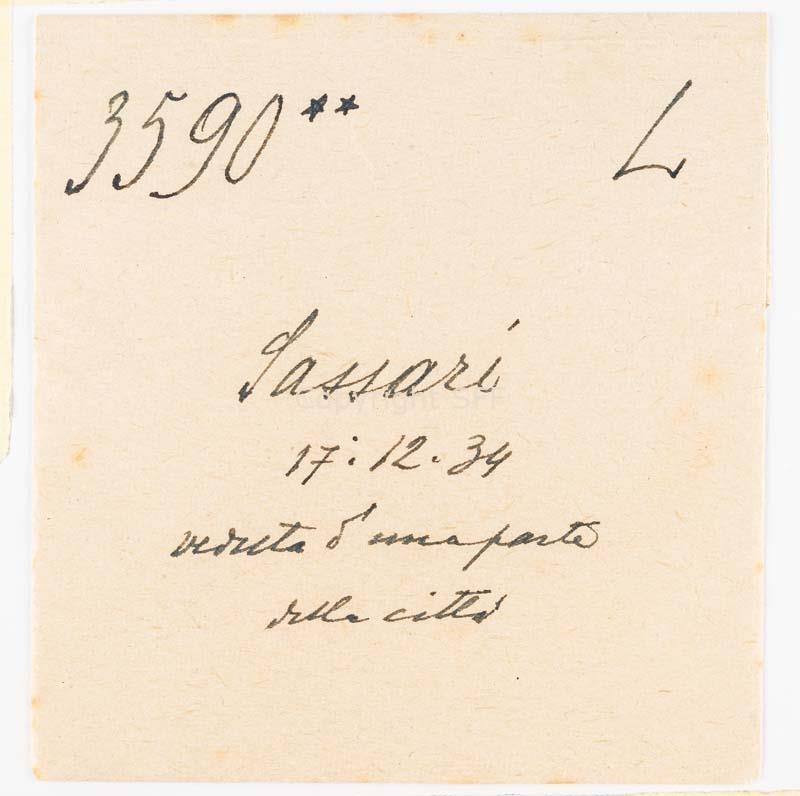 3590** L
Sassari
Copyright SFF
17.12.34
veduta d'una parte
della città